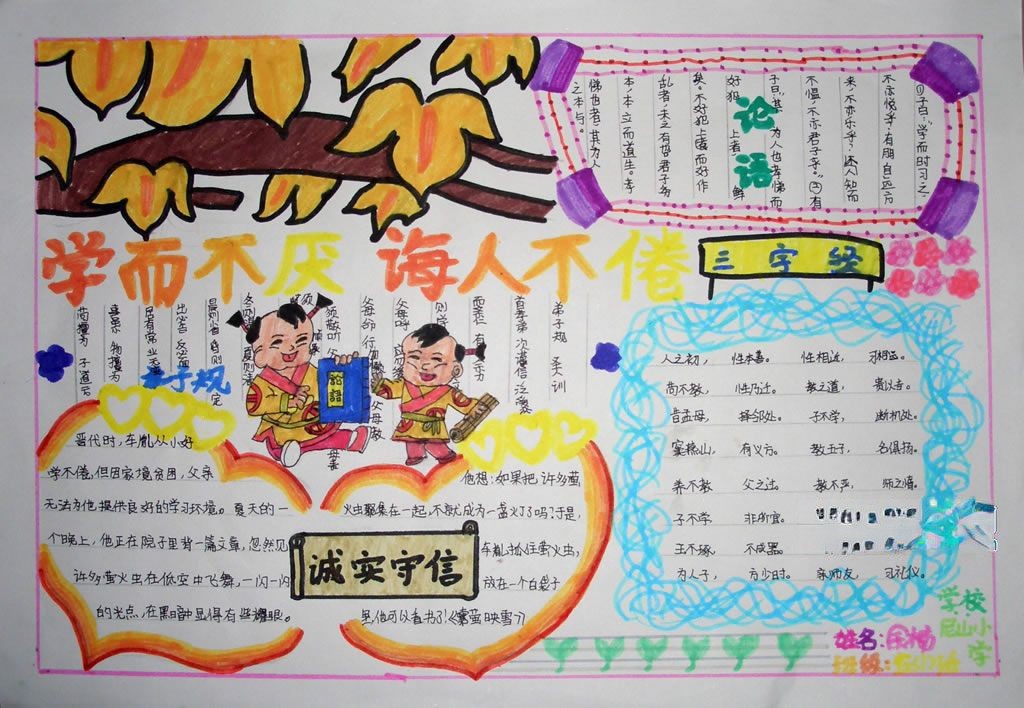 论语
①子曰:“学而时习之
不亦悦乎?有朋自远方
来,不亦乐乎?人不知而
不愠,不亦君子乎。”②有
子曰:“其为人也孝悌而
好犯上者鲜
矣。不好犯上而好作
乱者,未之有也君子务
本,本立而道生。孝
悌也者,其为人
之本与。
学而不厌 诲人不倦
三字经
人之初, 性本善。 性相近, 习相远。
苟不教, 性乃迁。 教之道, 贵以专。
昔孟母, 择邻处。 子不学, 断机处。
窦燕山, 有义方。 教五子, 名俱扬。
养不教 父之过。 教不严, 师之惰。
子不学, 非所宜。
玉不琢, 不成器。
为人子, 方少时。 亲师友, 习礼仪。
弟子规 圣训
首孝弟 次谨信 泛爱众
父母呼
父母命 行
父母教
须敬听
弟子规
論語
晋代时,车胤从小好
学不倦,但因家境贫困,父亲
无法为他提供良好的学习环境。夏天的一
个晚上,他正在院子里背一篇文章,忽然见
许多萤火虫在低空中飞舞,一闪一闪
的光点,在黑暗中显得有些耀眼。
他想:如果把许多萤
火虫聚集在一起,不就成为一盏灯了吗?于是,
车胤抓住萤火虫,
放在一个白袋子
里,他可以看书了!《囊萤映雪》
诚实守信
学校:
尼山小学
姓名:
班级: